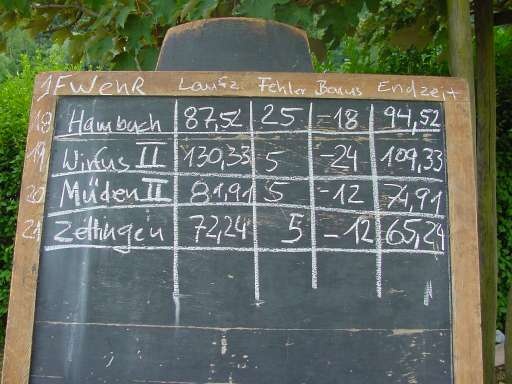 1 FWehR Laufz Fehler Bonus Endzeit
18 Hambuch 87,52 25 -18 94,52
19 Wirfus II 130,33 5 -24 109,33
20 Müden II 81,91 5 -12 74,91
21 Zettingen 72,24 5 -12 65,24